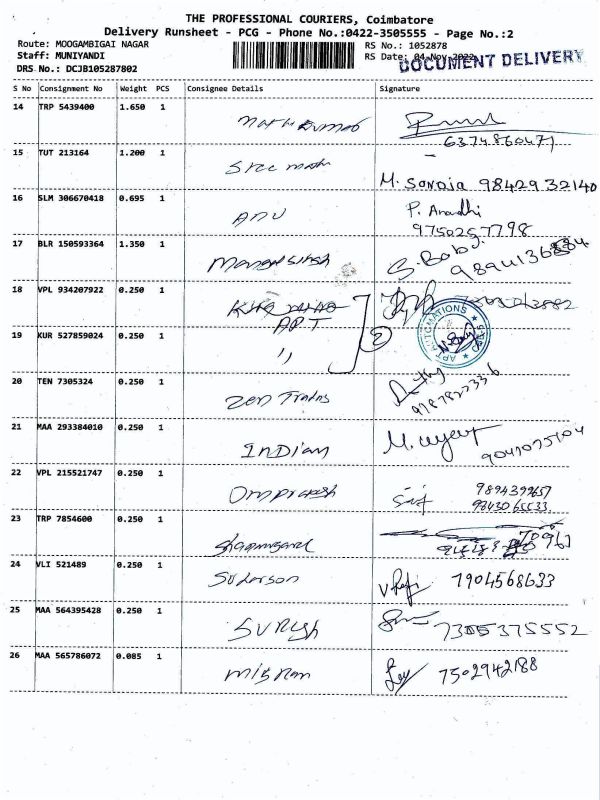 THE PROFESSIONAL COURIERS, Coimbatore
Delivery Runsheet - PCG - Phone No.:0422-3505555 - Page No.:2
Route: MOOGAMBIGAI NAGAR RS No.: 1052878
Staff: MUNIYANDI RS Date: 04-Nov-2022
DOCUMENT DELIVERY
DRS No.: DCJB105287802
S No Consignment No Weight PCS Consignee Details Signature
14 TRP 5439400 1.650 1
6374860471
15 TUT 213164 1.200 1 Sree
M. Saroja 9842932140
16 SLM 306670418 0.695 1 ANU P. Anandhi
9750257798
17 BLR 150593364 1.350 1 Mangal Singh S. Babu.
9894136884
18 VPL 934207922 0.250 1
APT 2
19 KUR 527859024 0.250 1 "
20 TEN 7305324 0.250 1 Zen Trades
9787827336
21 MAA 293384010 0.250 1 INDIAN
22 VPL 215521747 0.250 1 Omprakash
9843065533
23 TRP 7854600 0.250 1
24 VLI 521489 0.250 1 Suderson 7904568633
25 MAA 564395428 0.250 1 SURESH 7305375552
26 MAA 565786072 0.085 1 7502942188